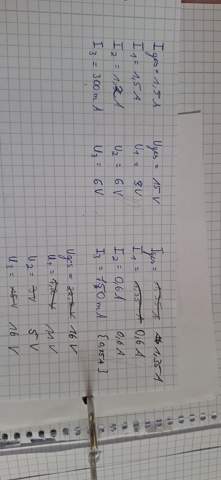 Iges = 1,5A
I1 = 1,5A
I2 = 1,2A
I3 = 300mA
Uges = 15V
U1 = 9V
U2 = 6V
U3 = 6V
Iges = 1,35A
I1 = 0,6A
I2 = 0,6A 0,6A
I3 = 750mA [0,75A]
Uges = 16V
U1 = 11V
U2 = 5V
U3 = 16V